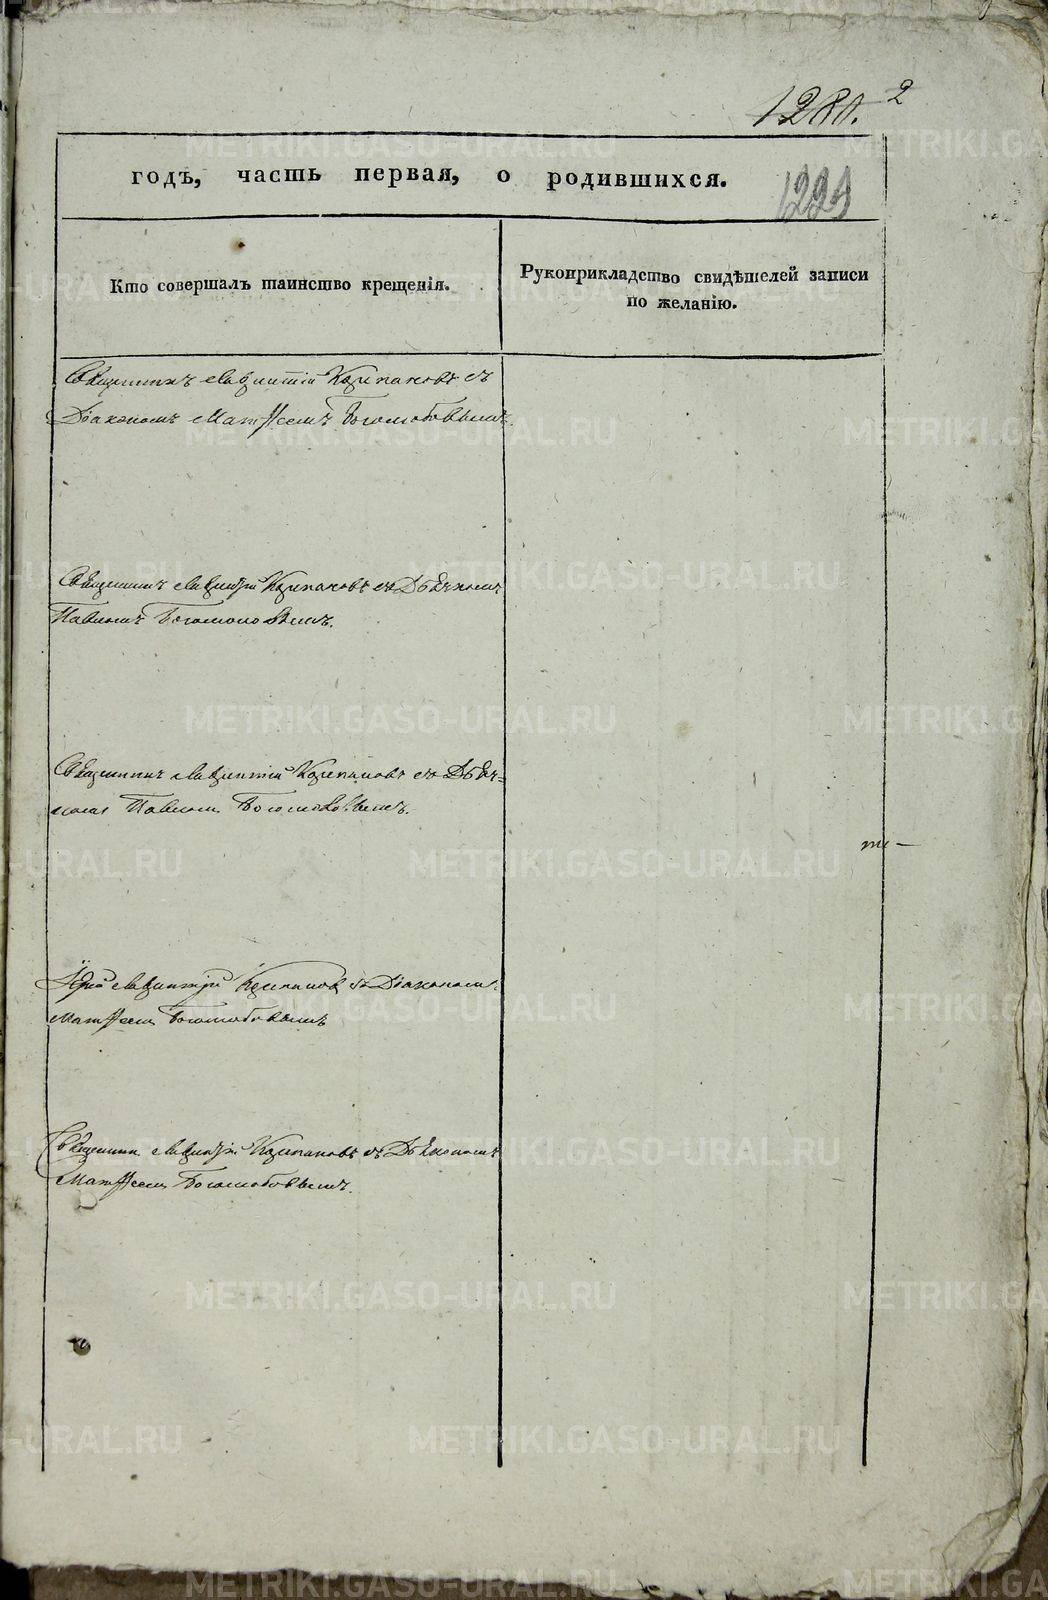 1280. 2
годъ, часть первая, о родившихся.
1229
Кто совершалъ таинство крещенія.
Рукоприкладство свидѣтелей записи
по желанію.
Священникъ Лаврентій Карпановъ съ
Діакономъ Матѳеемъ Боголюбовымъ.
Священникъ Лаврентій Карпановъ съ Дьячкомъ
Павломъ Богомоловымъ.
Священникъ Лаврентій Карпановъ съ Дьяч=
комъ Павломъ Богомоловымъ.
Іерей Лаврентій Карпановъ съ Діакономъ
Матѳеемъ Боголюбовымъ
Священникъ Лаврентій Карпановъ съ Діакономъ
Матѳеемъ Боголюбовымъ.
METRIKI.GASO-URAL.RU